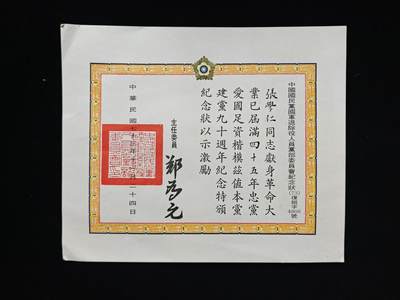 中國國民黨國軍退除役人員黨部委員會紀念狀
張學仁同志獻身革命大
業已屆滿四十五年忠黨
愛國足資楷模茲值本黨
建黨九十週年紀念特頒
紀念狀以示激勵
主任委員
鄭為元
中華民國七十三年十一月二十四日